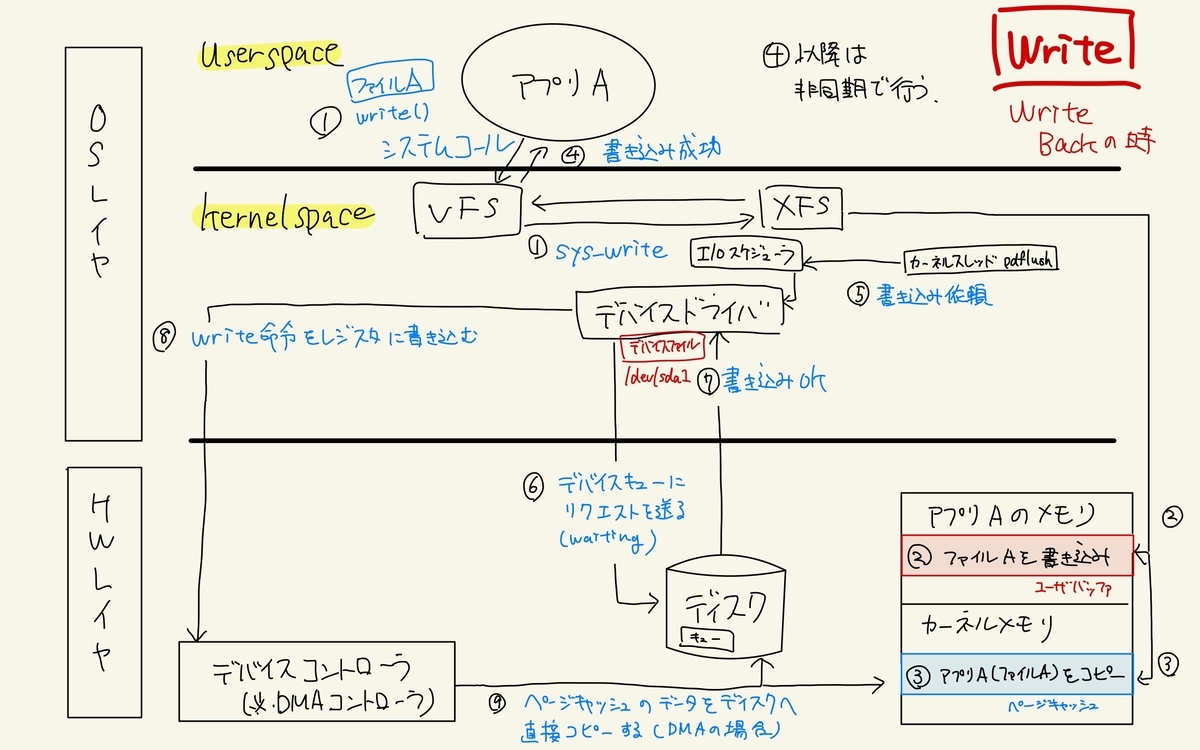 Userspace
ファイルA
① write()
システムコール
アプリA
④ 書き込み成功
④以降は
非同期で行う.
Write
Write
Backの時
OSレイヤ
kernelspace
VFS
XFS
① sys_write
I/Oスケジューラ
カーネルスレッド pdflush
⑤ 書き込み依頼
デバイスドライバ
デバイスファイル
/dev/sda1
⑦ 書き込みOK
⑧ write命令をレジスタに書き込む
HWレイヤ
⑥ デバイスキューに
リクエストを送る
(waiting)
ディスク
キュー
デバイスコントローラ
(※.DMAコントローラ)
⑨ ページキャッシュのデータをディスクへ
直接コピーする(DMAの場合)
アプリAのメモリ
② ファイルAを書き込み
ユーザバッファ
カーネルメモリ
③ アプリA(ファイルA)をコピー
ページキャッシュ
②
③